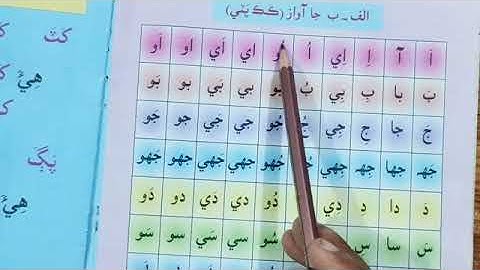 الف ـ ب جا آواز (ڪڪ پٽي)
اَ آ اِ اِي اُ اي اَي او اَو
بَ با بِ بِي بُ بُو بي بَي بو بَو
جَ جا جِ جِي جُ جُو جي جَي جو جَو
جَهہ جها جِهہ جِهي جُهو جهي جَهي جهو جَهو
دَ دا دِ دِي دُو دي دَي دو دَو
سَ سا سِ سِي سُو سي سَي سو سَو
ڪٽ
هيءُ
پڳ
هيءُ